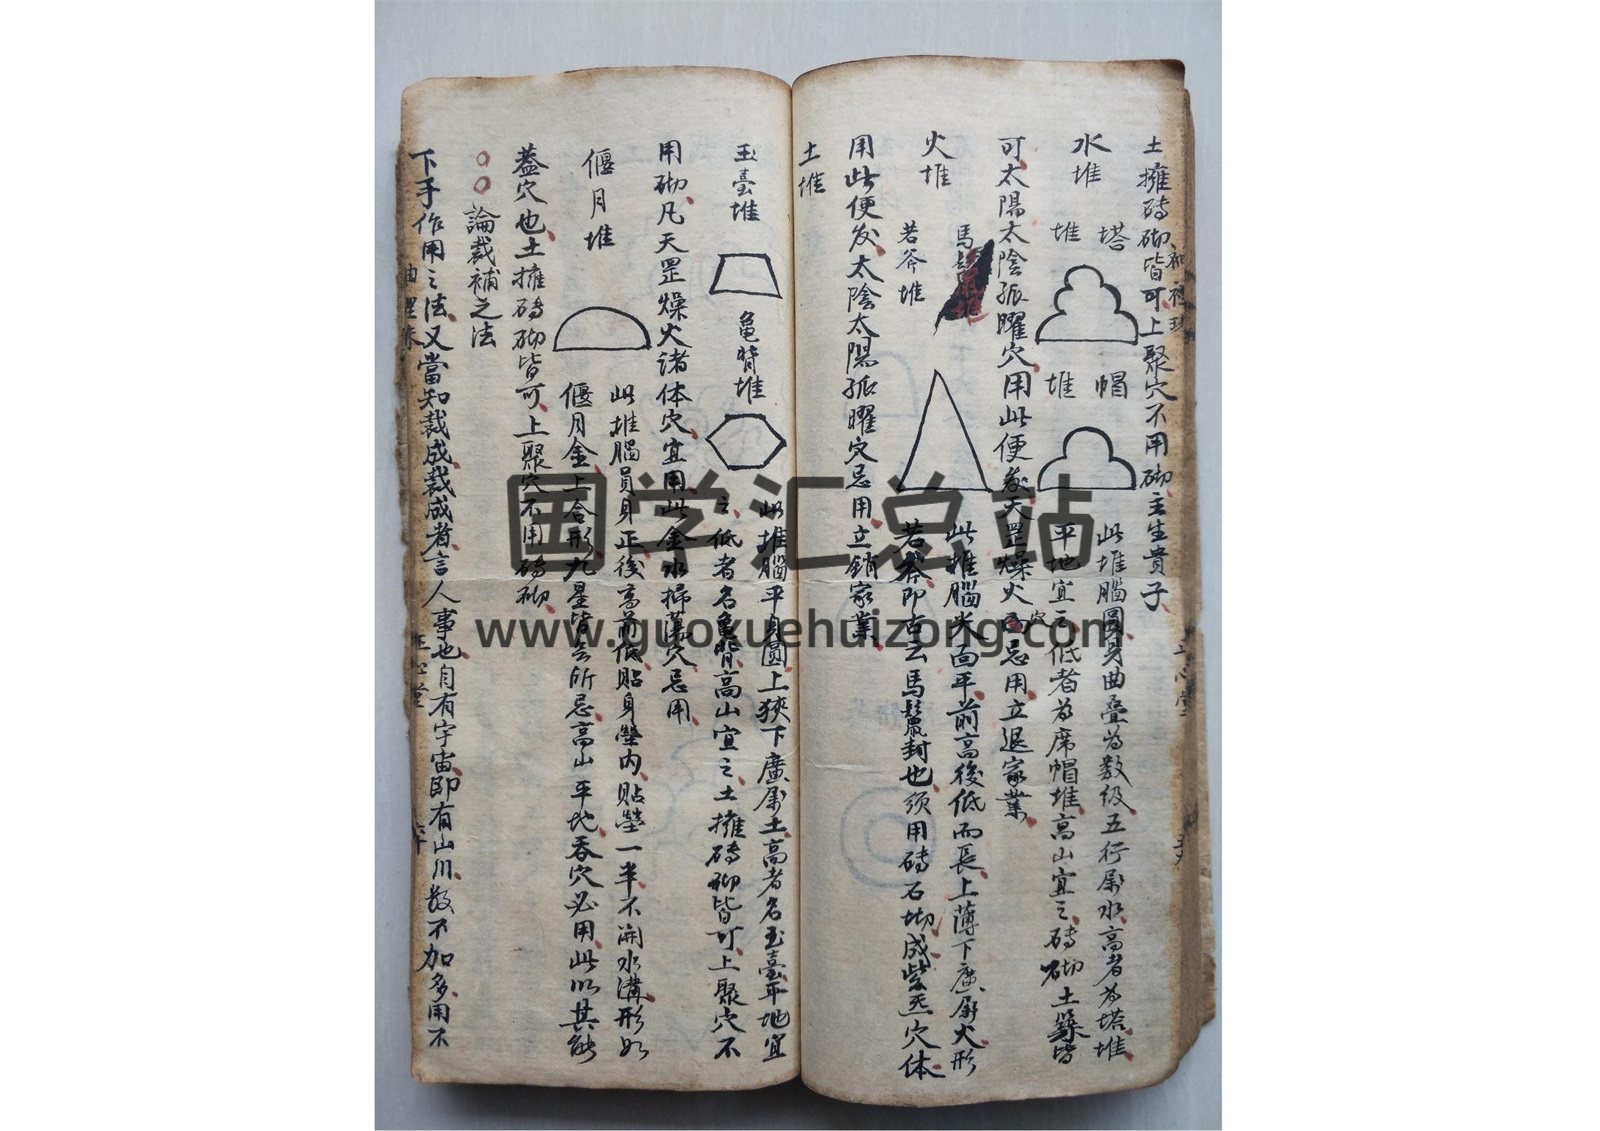 土擁磚砌皆可上聚穴不用砌主生貴子
水堆
塔堆
帽堆
此堆腦圓身曲疊為数级五行屬水高者为塔堆
平地宜之低者为席帽堆高山宜之磚砌土築皆
可太陽太陰孤曜穴用此便發天罡燥火穴忌用立退家業
火堆
馬
若斧堆
此堆腦尖面平前高後低而長上薄下廣屬火形
若斧即古云馬鬣封也须用磚石坳成紫炁穴体
用此便发太陰太陽孤曜穴忌用立銷家業
土堆
玉臺堆
龜背堆
此堆腦平身圓上狹下廣屬土高者名玉臺平地宜
之低者名龜背高山宜之土擁磚砌皆可上聚穴不
用砌凡天罡燥火诸体穴宜用此金水掃蕩穴忌用
偃月堆
此堆腦員身正後高前低貼身塋内貼塋一半不開水溝形如
偃月金上合形九星皆無所忌高山平地吞穴必用此以其能
蓋穴也土擁磚砌皆可上聚穴不用磚砌
○○論裁補之法
下手作用之法又當知裁成裁成者言人事也自有宇宙即有山川数不加多用不
国学汇总站
www.guoxuehuizong.com